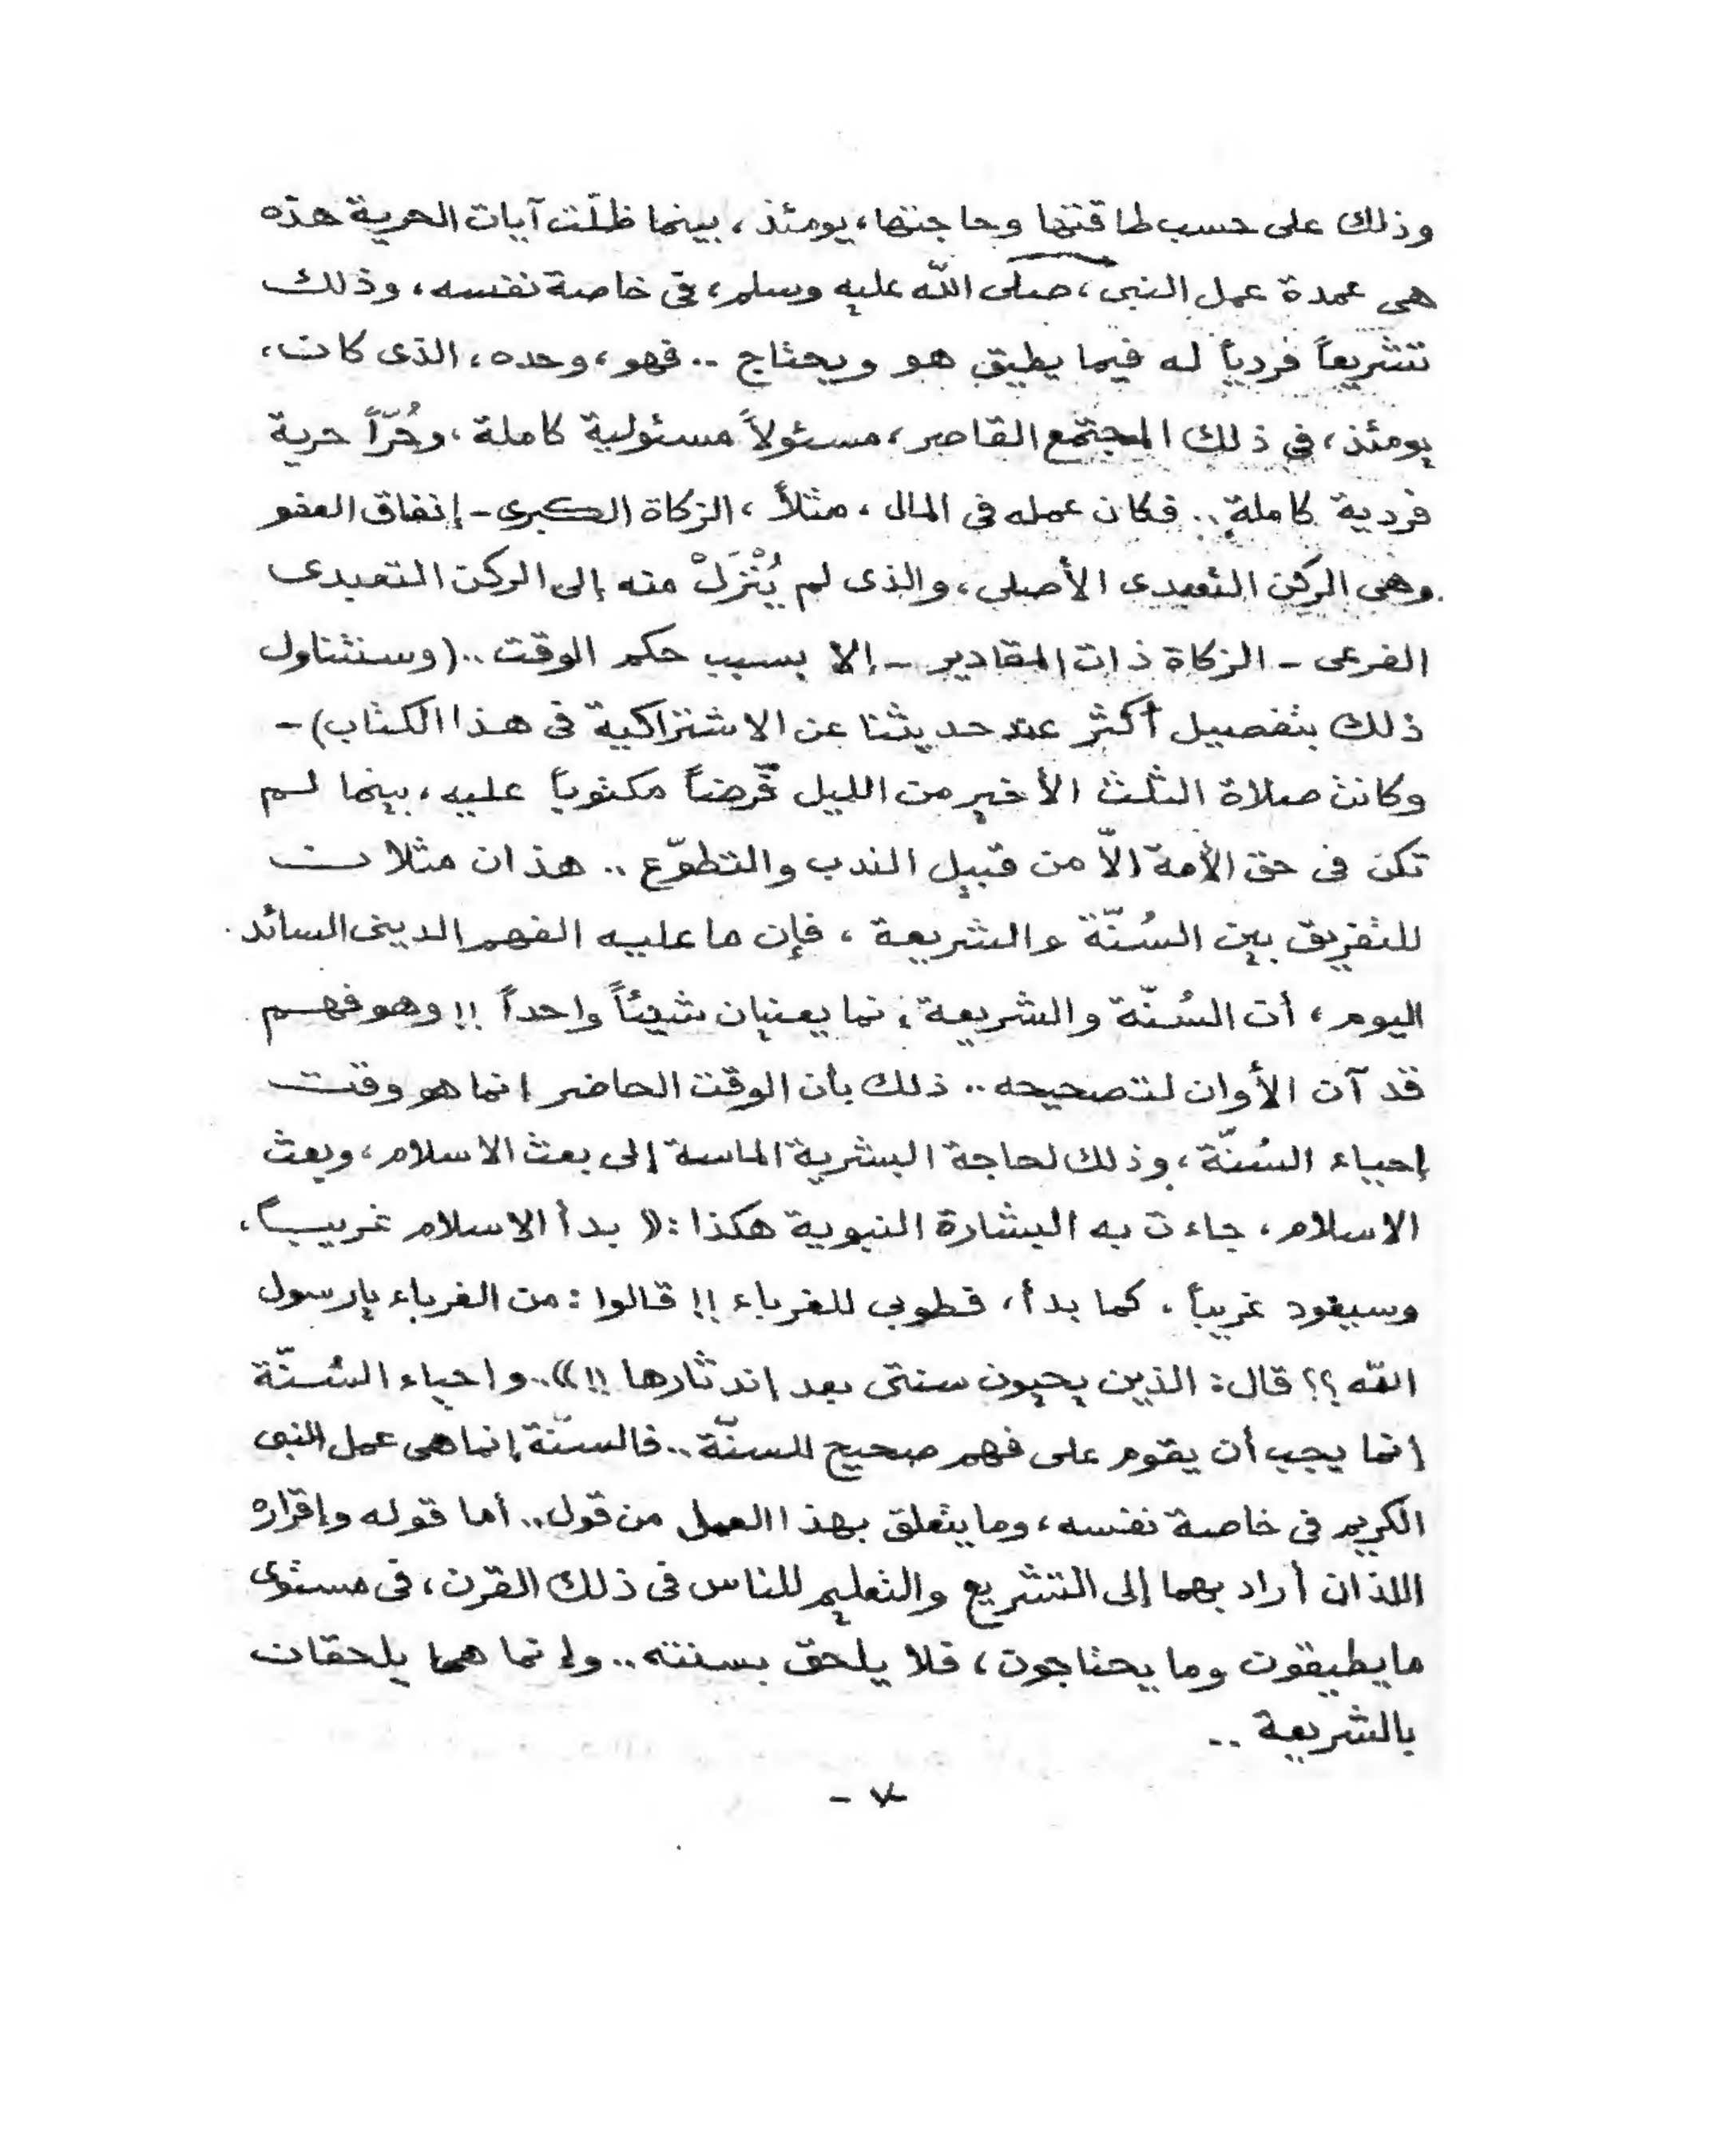 وذلك على حسب طاقتها وحاجتها، يومئذ، بينما ظلّت آيات الحرية هذه
هى عمدة عمل النبى، صلى اللّه عليه وسلم، فى خاصة نفسه، وذلك
تشريعاً فردياً له فيما يطيق هو ويحتاج .. فهو، وحده، الذى كان،
يومئذ، فى ذلك المجتمع القاصر، مسئولاً مسئولية كاملة، وحُرّاً حرية
فردية كاملة.. فكان عمله فى المال، مثلاً، الزكاة الكبرى - إنفاق العفو
وهى الركن التعبدى الأصلى، والذى لم يُنْزَلْ منه إلى الركن التعبدى
الفرعى - الزكاة ذات المقادير - إلا بسبب حكم الوقت.. (وسنتناول
ذلك بتفصيل أكثر عند حديثنا عن الاشتراكية فى هذا الكتاب) -
وكانت صلاة الثلث الأخير من الليل فرضاً مكتوباً عليه، بينما لم
تكن فى حق الأمة الاّ من قبيل الندب والتطوّع .. هذان مثلان
للتفريق بين السُنّة والشريعة، فإن ما عليه الفهم الدينى السائد
اليوم، أن السُنّة والشريعة إنما يعنيان شيئاً واحداً !! وهو فهم
قد آن الأوان لتصحيحه .. ذلك بأن الوقت الحاضر انما هو وقت
إحياء السُنّة، وذلك لحاجة البشرية الماسة إلى بعث الاسلام، وبعث
الاسلام، جاءت به البشارة النبوية هكذا: (( بدأ الاسلام غريباً،
وسيعود غريباً، كما بدأ، فطوبى للغرباء !! قالوا: من الغرباء يارسول
اللّه ؟؟ قال: الذين يحيون سنتى بعد إندثارها !!)).. واحياء السُنّة
إنما يجب أن يقوم على فهم صحيح للسنّة.. فالسنّة إنما هى عمل النبى
الكريم فى خاصة نفسه، وما يتعلق بهذا العمل من قول.. أما قوله وإقراره
اللذان أراد بهما إلى التشريع والتعليم للناس فى ذلك القرن، فى مستوى
ما يطيقون وما يحتاجون، فلا يلحق بسنته.. وإنما هما يلحقان
بالشريعة ..
- ٧ -